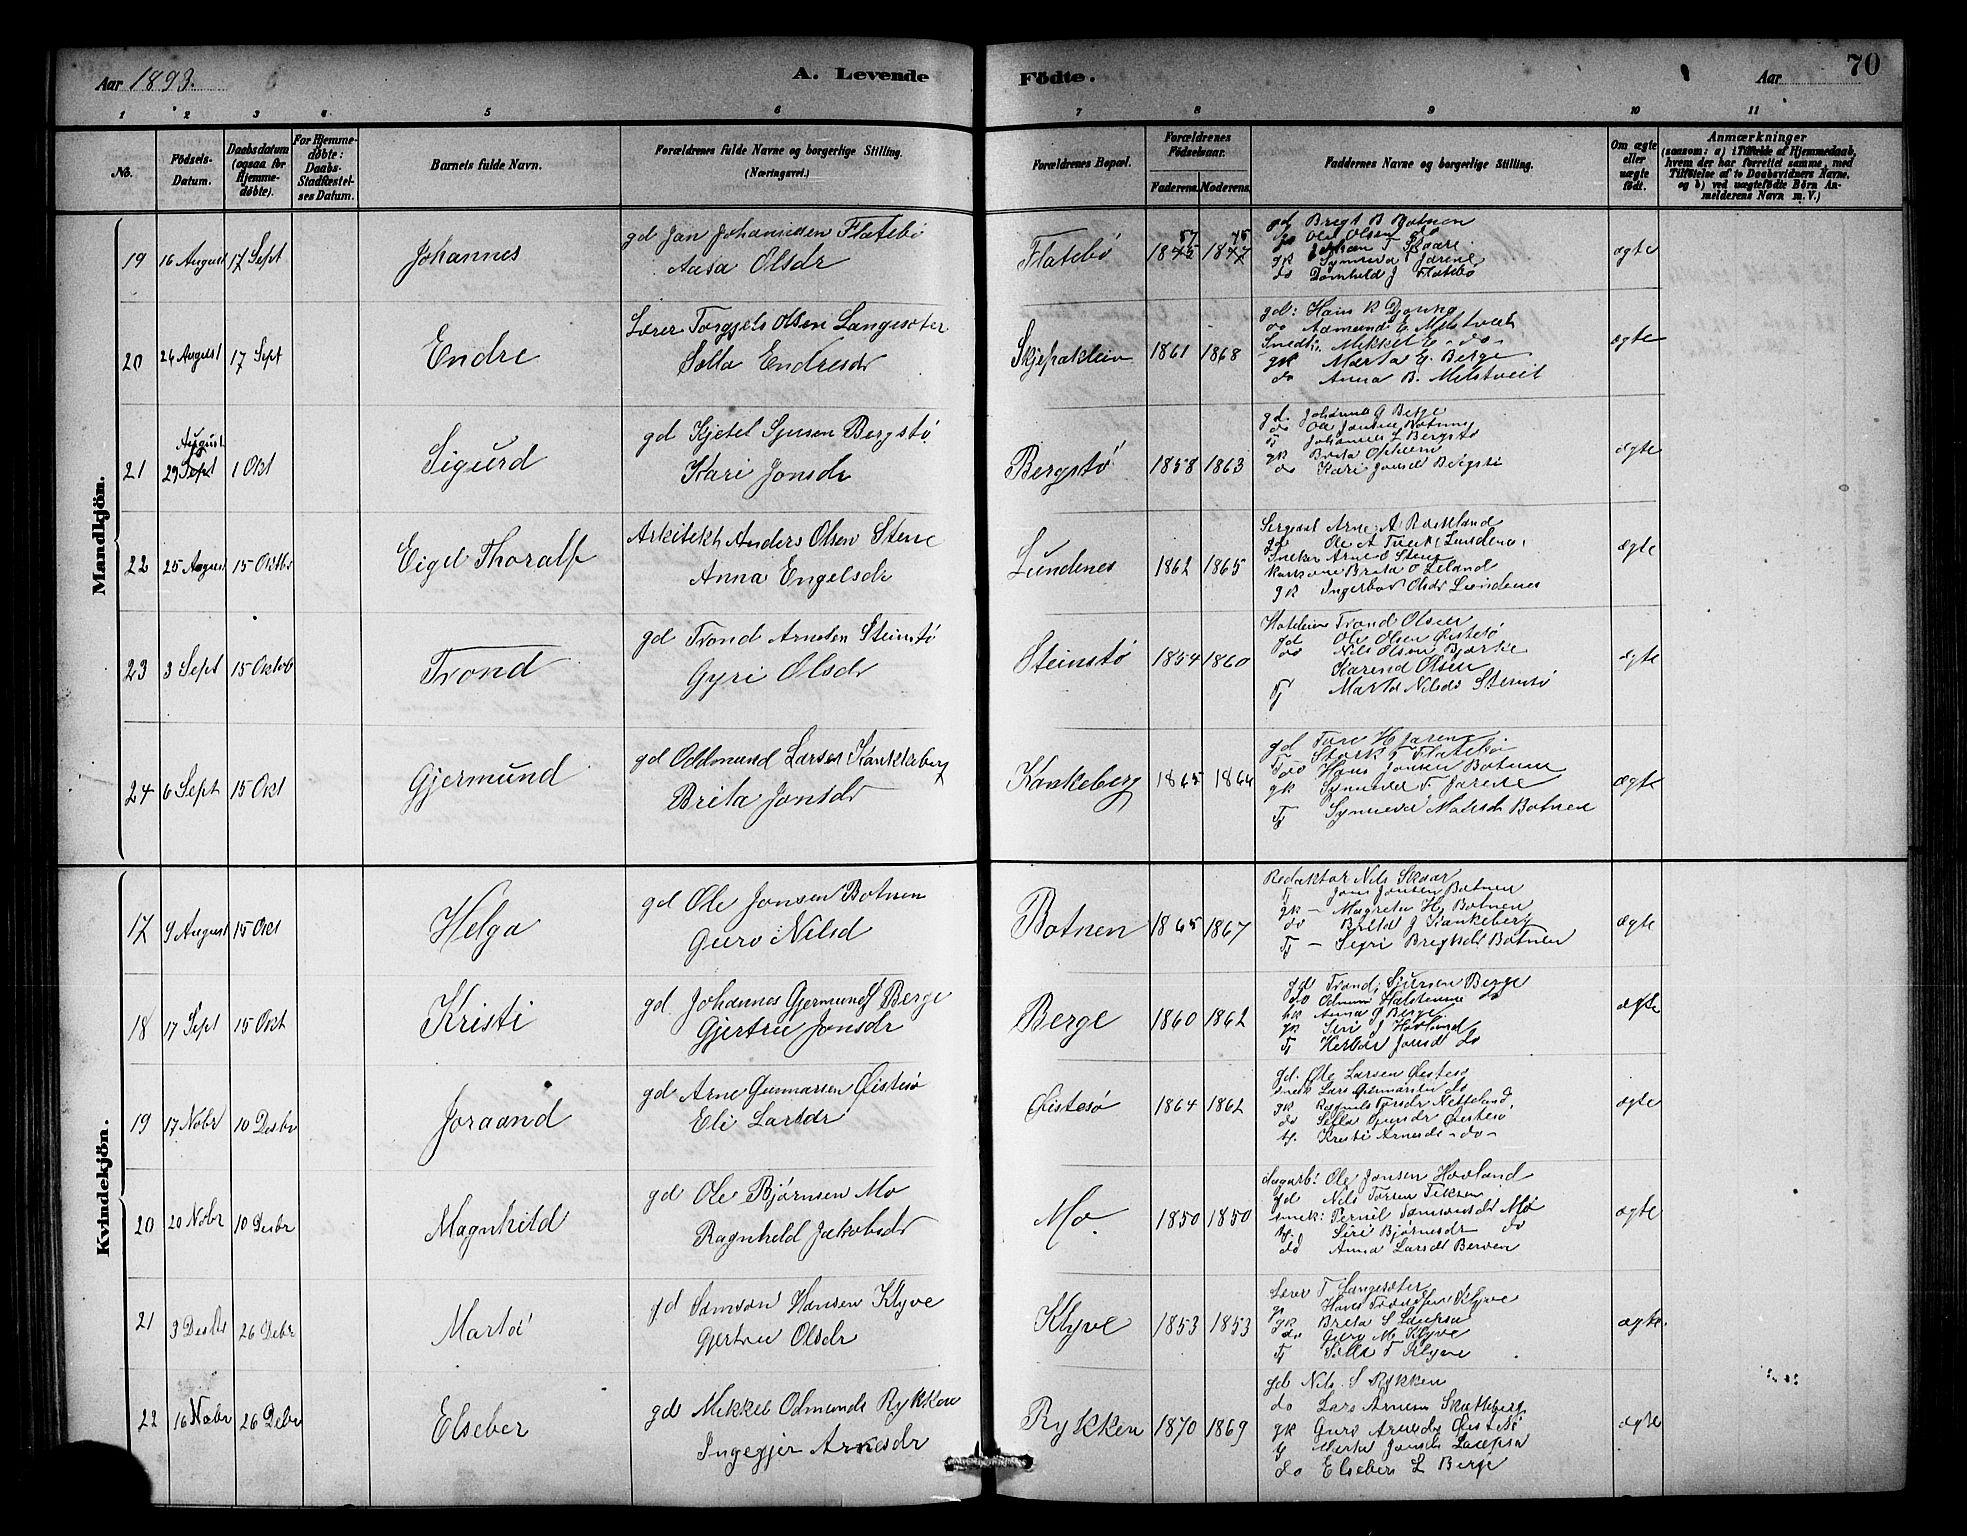 Aar 1893.
A. Levende Födte.
Aar
70
1 2 3 4 5 6 7 8 9 10 11
No.
Födsels-Datum.
Daabsdatum (ogsaa for Hjemme-døbte).
For Hjemme-døbte: Daabs-Stadfæstel-ses Datum.
Barnets fulde Navn.
Forældrenes fulde Navne og borgerlige Stilling. (Næringsvei.)
Forældrenes Bopæl.
Forældrenes Födselsaar.
Faderens. Moderens.
Faddernes Navne og borgerlige Stilling.
Om ægte eller uægte födt.
Anmærkninger
(saasom: a) i Tilfælde af Hjemmedaab,
hvem der har forrettet samme, med
Tilföielse af to Daabsvidners Navne,
og b) ved uægtefödte Börn An-
melderens Navn m. V.)
Mandkjön.
19 16 August 17 Sept Johannes
gd Jan Johannesen Flatebö
Aasa Olsdr
Flatebö 1845 57 1847
gd Brigt B Botnen
do Ole Olsen
gk Synneva T Jarene
do Domhild J Flatebö
ægte
20 24 August 17 Sept Endre
Lærer Torgjels Olsen Langesæter
Endresdr
1861 1868
gd: Hans K
do Aamund E. Melstveit
Mikkel E - do -
gk Marta E. Berge
do Anna B. Melstveit
ægte
21 29 Sept August 1 Okt Sigurd
gd Kjetel Sjursen Bergstø
Kari Jonsdr
Bergstø 1858 1863
gd. Johannes G Berge
do Ole Jonsen Botnen
Tj Johannes L Bergstø
gk Brita
do Kari Jonsd
ægte
22 25 August 15 Oktbr Eigel Thoralf
Arkitekt Anders Olsen Stene
Anna Engelsdr
Lundenes 1862 1865
Arne A Rockland
gd Ole A Lundenes
Sneker Arne O Stene
Brita O Leland
gk Ingerbor Olsdr Lundenes
ægte
23 3 Sept 15 Oktob Trond
gd Trond Arnesen Steinstø
Gyri Olsdr
Steinstø 1854 1860
Trond Olsen
gd Ole Olsen Øistesø
do Nils Olsen Bjørke
Karend Olsen
Tj Marta Nilsdr Steinstø
ægte
24 6 Sept 15 Okt Gjermund
gd Oddmund Larsen Kankeberg
Brita Jonsdr
Kankeberg 1865 1864
gd Tore H Jarene
Flatebø
Hans Jonsen Botnen
gk Synneva T. Jarene
Tj Synneva Botnen
ægte
Kvindekjön.
17 9 August 15 Okt Helga
gd Ole Jonsen Botnen
Guro Nilsd
Botnen 1865 1867
Redaktør Nils Skaar
Tj Jon Jonsen Botnen
gk - Magreta H. Botnen
do Brita J Kankeberg
Tj - Siri Brigtsdr Botnen
ægte
18 17 Sept 15 Okt Kristi
gd Johannes Gjermunds Berge
Gjertru Jonsdr
Berge 1860 1862
gd Trond Sjursen Berge
do Odmun do
Anna G Berge
gk Siri J Hovland
Tj Herbor Jonsd do
ægte
19 17 Nobr 10 Desbr Joraand
gd Arne Gunnarsen Øistesø
Eli Larsdr
Øistesø 1864 1862
gd. Ole Larsen Øistesø
Lars do
gk Torsdr Netteland
do Øistesø
tj. Kristi Arnesdr - do -
ægte
20 20 Nobr 10 Desbr Magnhild
gd Ole Bjørnsen Mo
Ragnheld Jakobsdr
Mo. 1850 1850
Ole Jonsen Hovland
gd Nils Torsen Teksen
Pernil Samsonsdr Mo
tj. Siri Bjørnsdr do
do Anna Larsdr Berven
ægte
21 3 Desbr 26 Debr Marta
gd Samson Hansen Klyve
Gjertru Olsdr
Klyve 1853 1853
Lærer T Langesæter
Hans Klyve
gk Brita S Laupsa
do Guro M. Klyve
Tj T Klyve
ægte.
22 16 Nobr 26 Debr Elseber
gd Mikkel Odmunds Rykken
Ingegjer Arnesdr
Rykken 1870 1869
gd Nils S Rykken
do Lars Arnesen Skutleberg
gk Guro Arnesdr Øistesø
Marta Laupsa
do Elseber L Berge
ægte